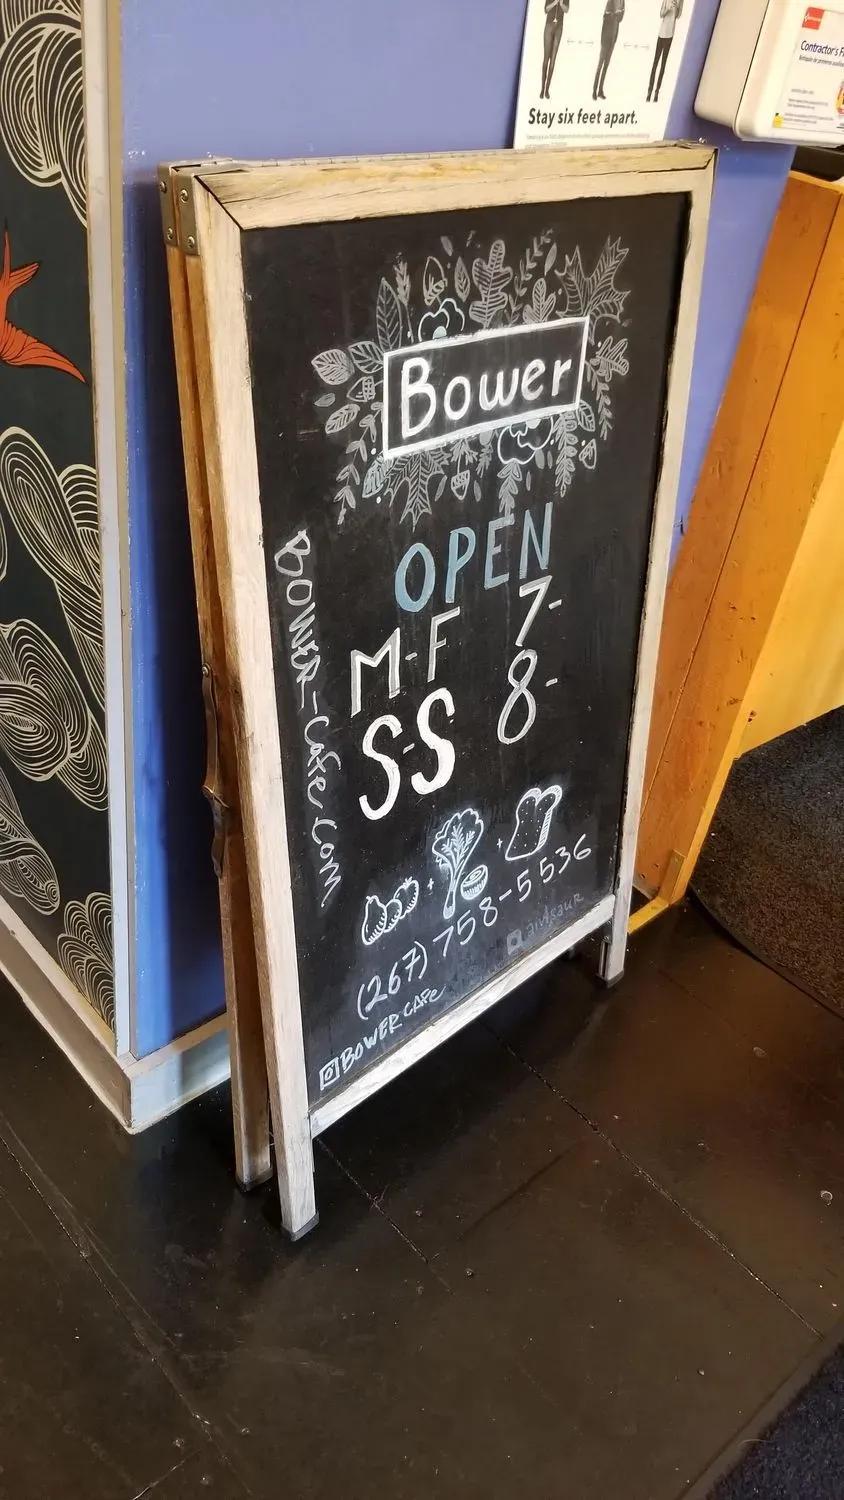 Stay six feet apart.
Contractor's F
Bower
OPEN
M-F 7-
S-S 8-
BOWER-cafe.com
(267) 758-5536
BOWER CAFe